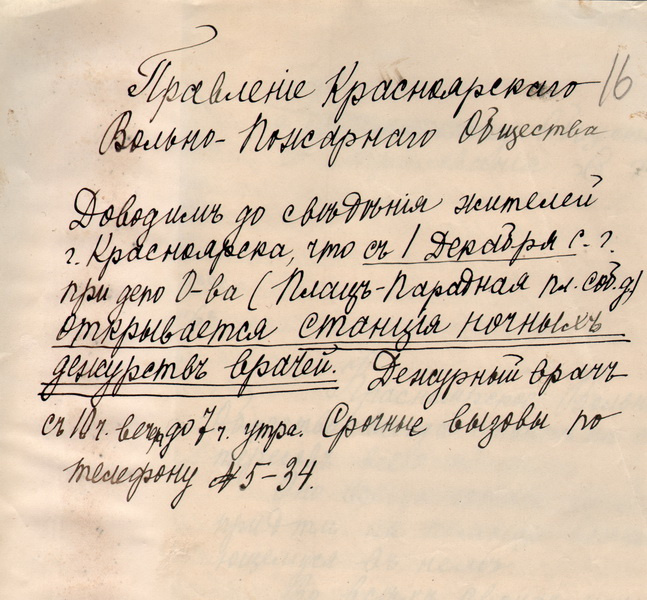 Правленіе Красноярскаго 16
Вольно-Пожарнаго Общества
Доводимъ до свѣдѣнія жителей
г. Красноярска, что съ 1 Декабря с. г.
при депо О-ва (Плацъ-Парадная пл. соб. д.)
открывается станція ночныхъ
дежурствъ врачей. Дежурный врачъ
съ 10 ч. веч. до 7 ч. утра. Срочные вызовы по
телефону № 5-34.